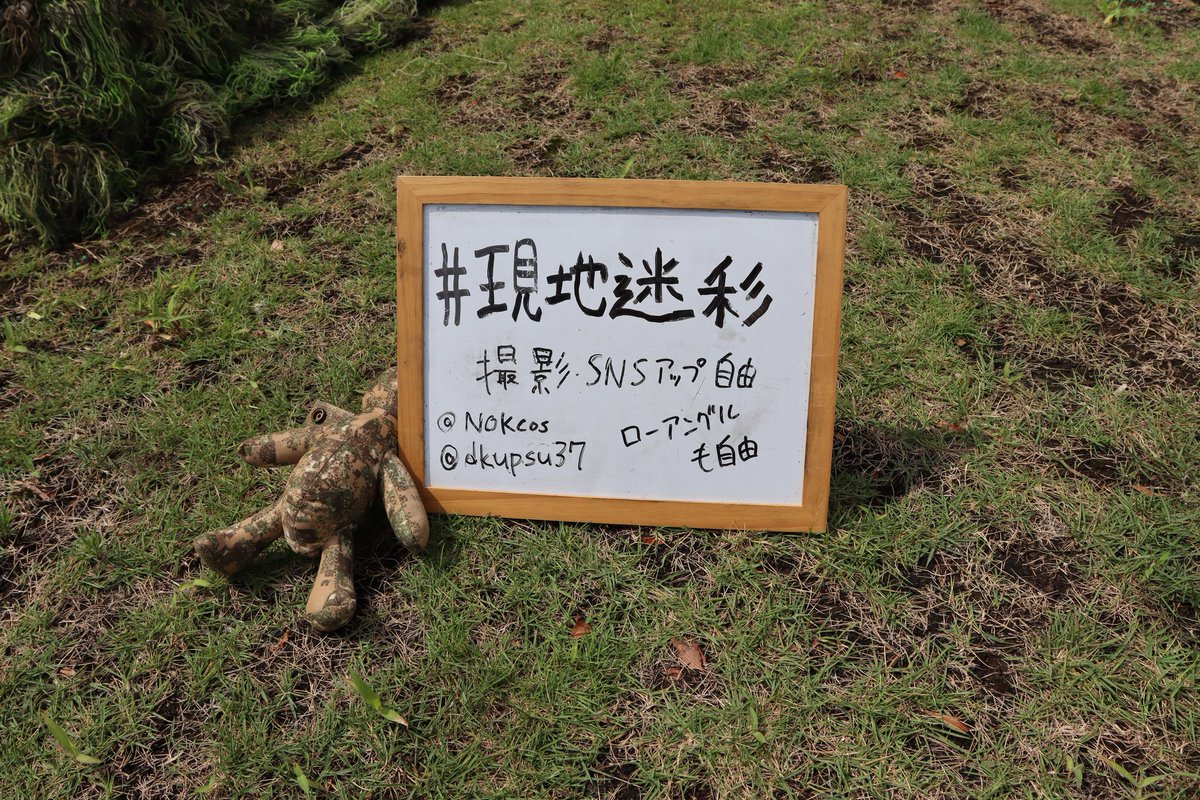 #現地迷彩
撮影・SNSアップ自由
@NOKcos
@dkupsu37
ローアングル
も自由